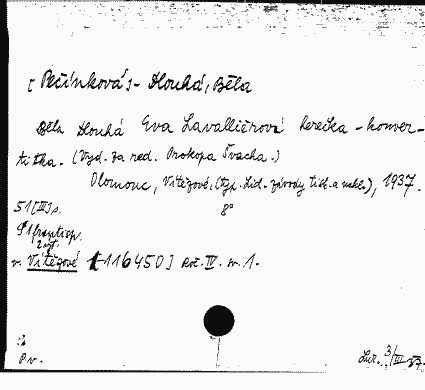 [Pečínková]-Dlouhá, Běla
Běla Dlouhá Eva Lavalliérová herečka-konver-
titka. (Vyd. za red. Prokopa Švacha.)
Olomouc, Vítězové, (Typ. Lid. závody tisk. a nakl.), 1937.
51[III]s. 8°
v. Vítězové [116450] Roč. IV. sv. 1.
Pv. 3/III 37.